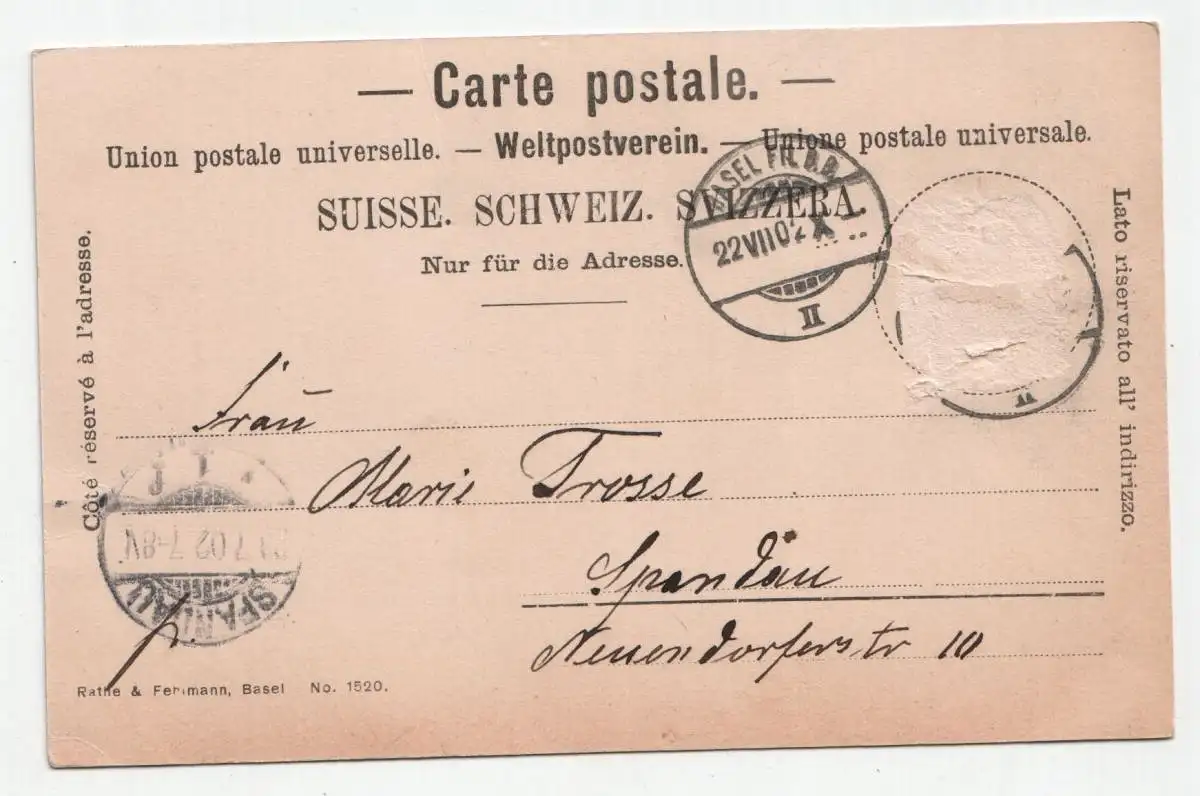 — Carte postale. —
Union postale universelle. — Weltpostverein. — Unione postale universale.
SUISSE. SCHWEIZ. SVIZZERA.
Nur für die Adresse.
BASEL FR. B.B.
22 VII 02 X
II
Côté réservé à l'adresse.
Lato riservato all' indirizzo.
Frau
Marie Trosse
Spandau
Neuendorferstr 10
SPANDAU
7 02 7-8V
p.
Rathe & Fehlmann, Basel No. 1520.